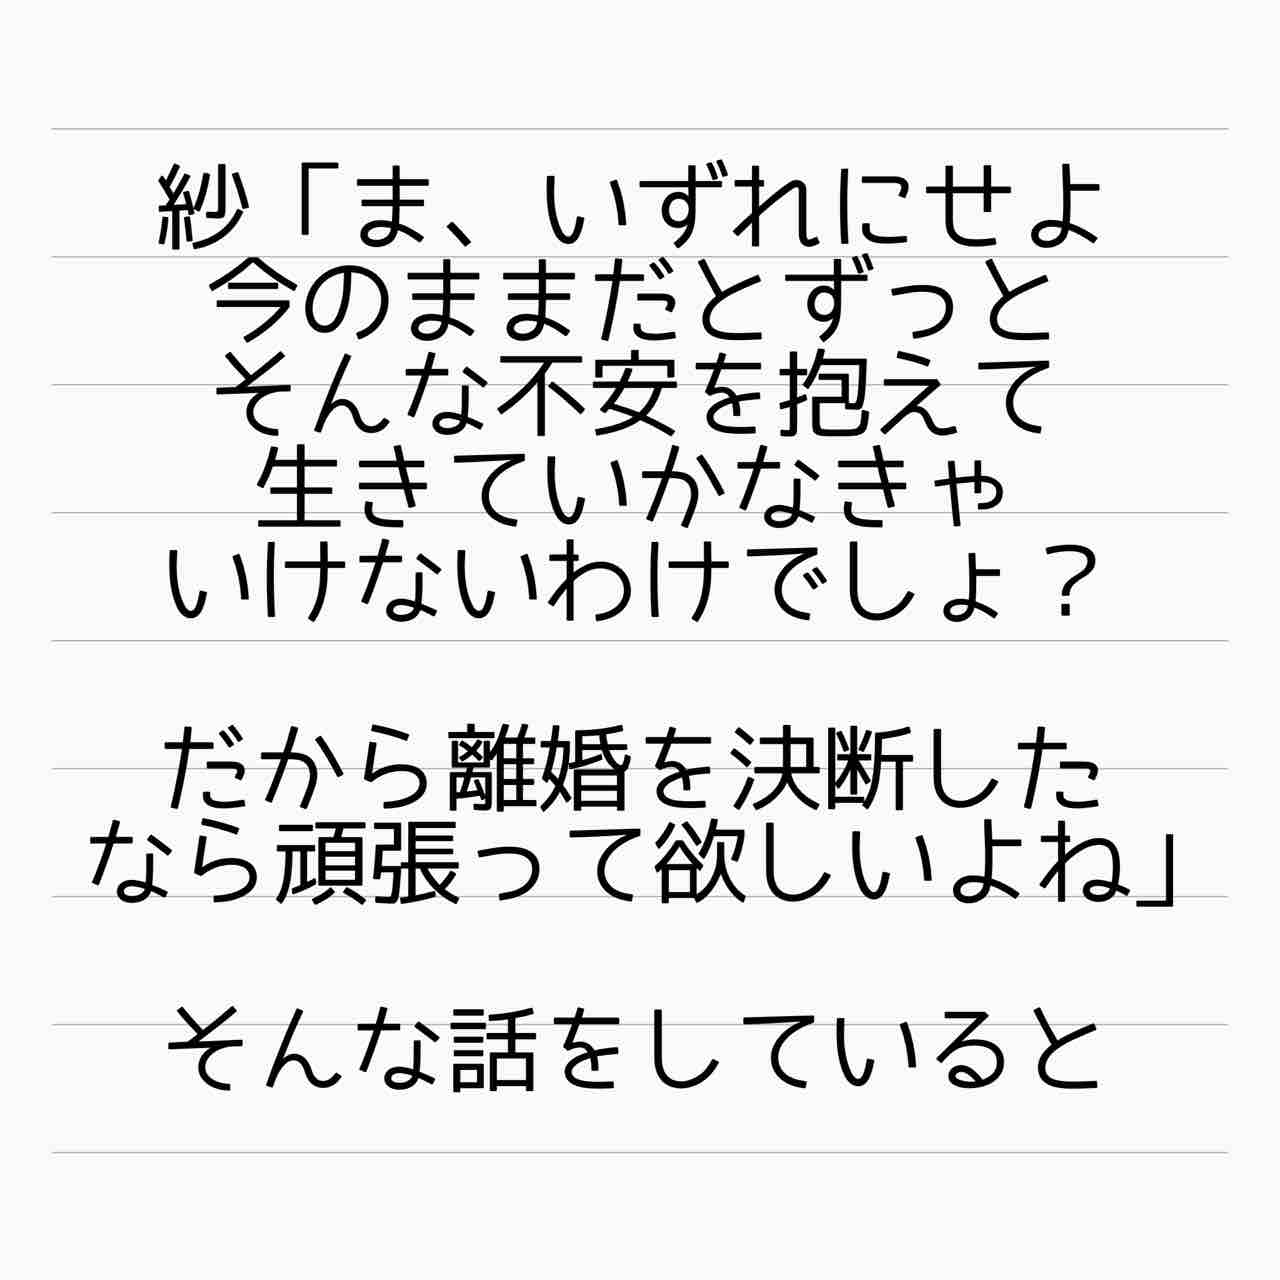 紗「ま、いずれにせよ
今のままだとずっと
そんな不安を抱えて
生きていかなきゃ
いけないわけでしょ？
だから離婚を決断した
なら頑張って欲しいよね」
そんな話をしていると